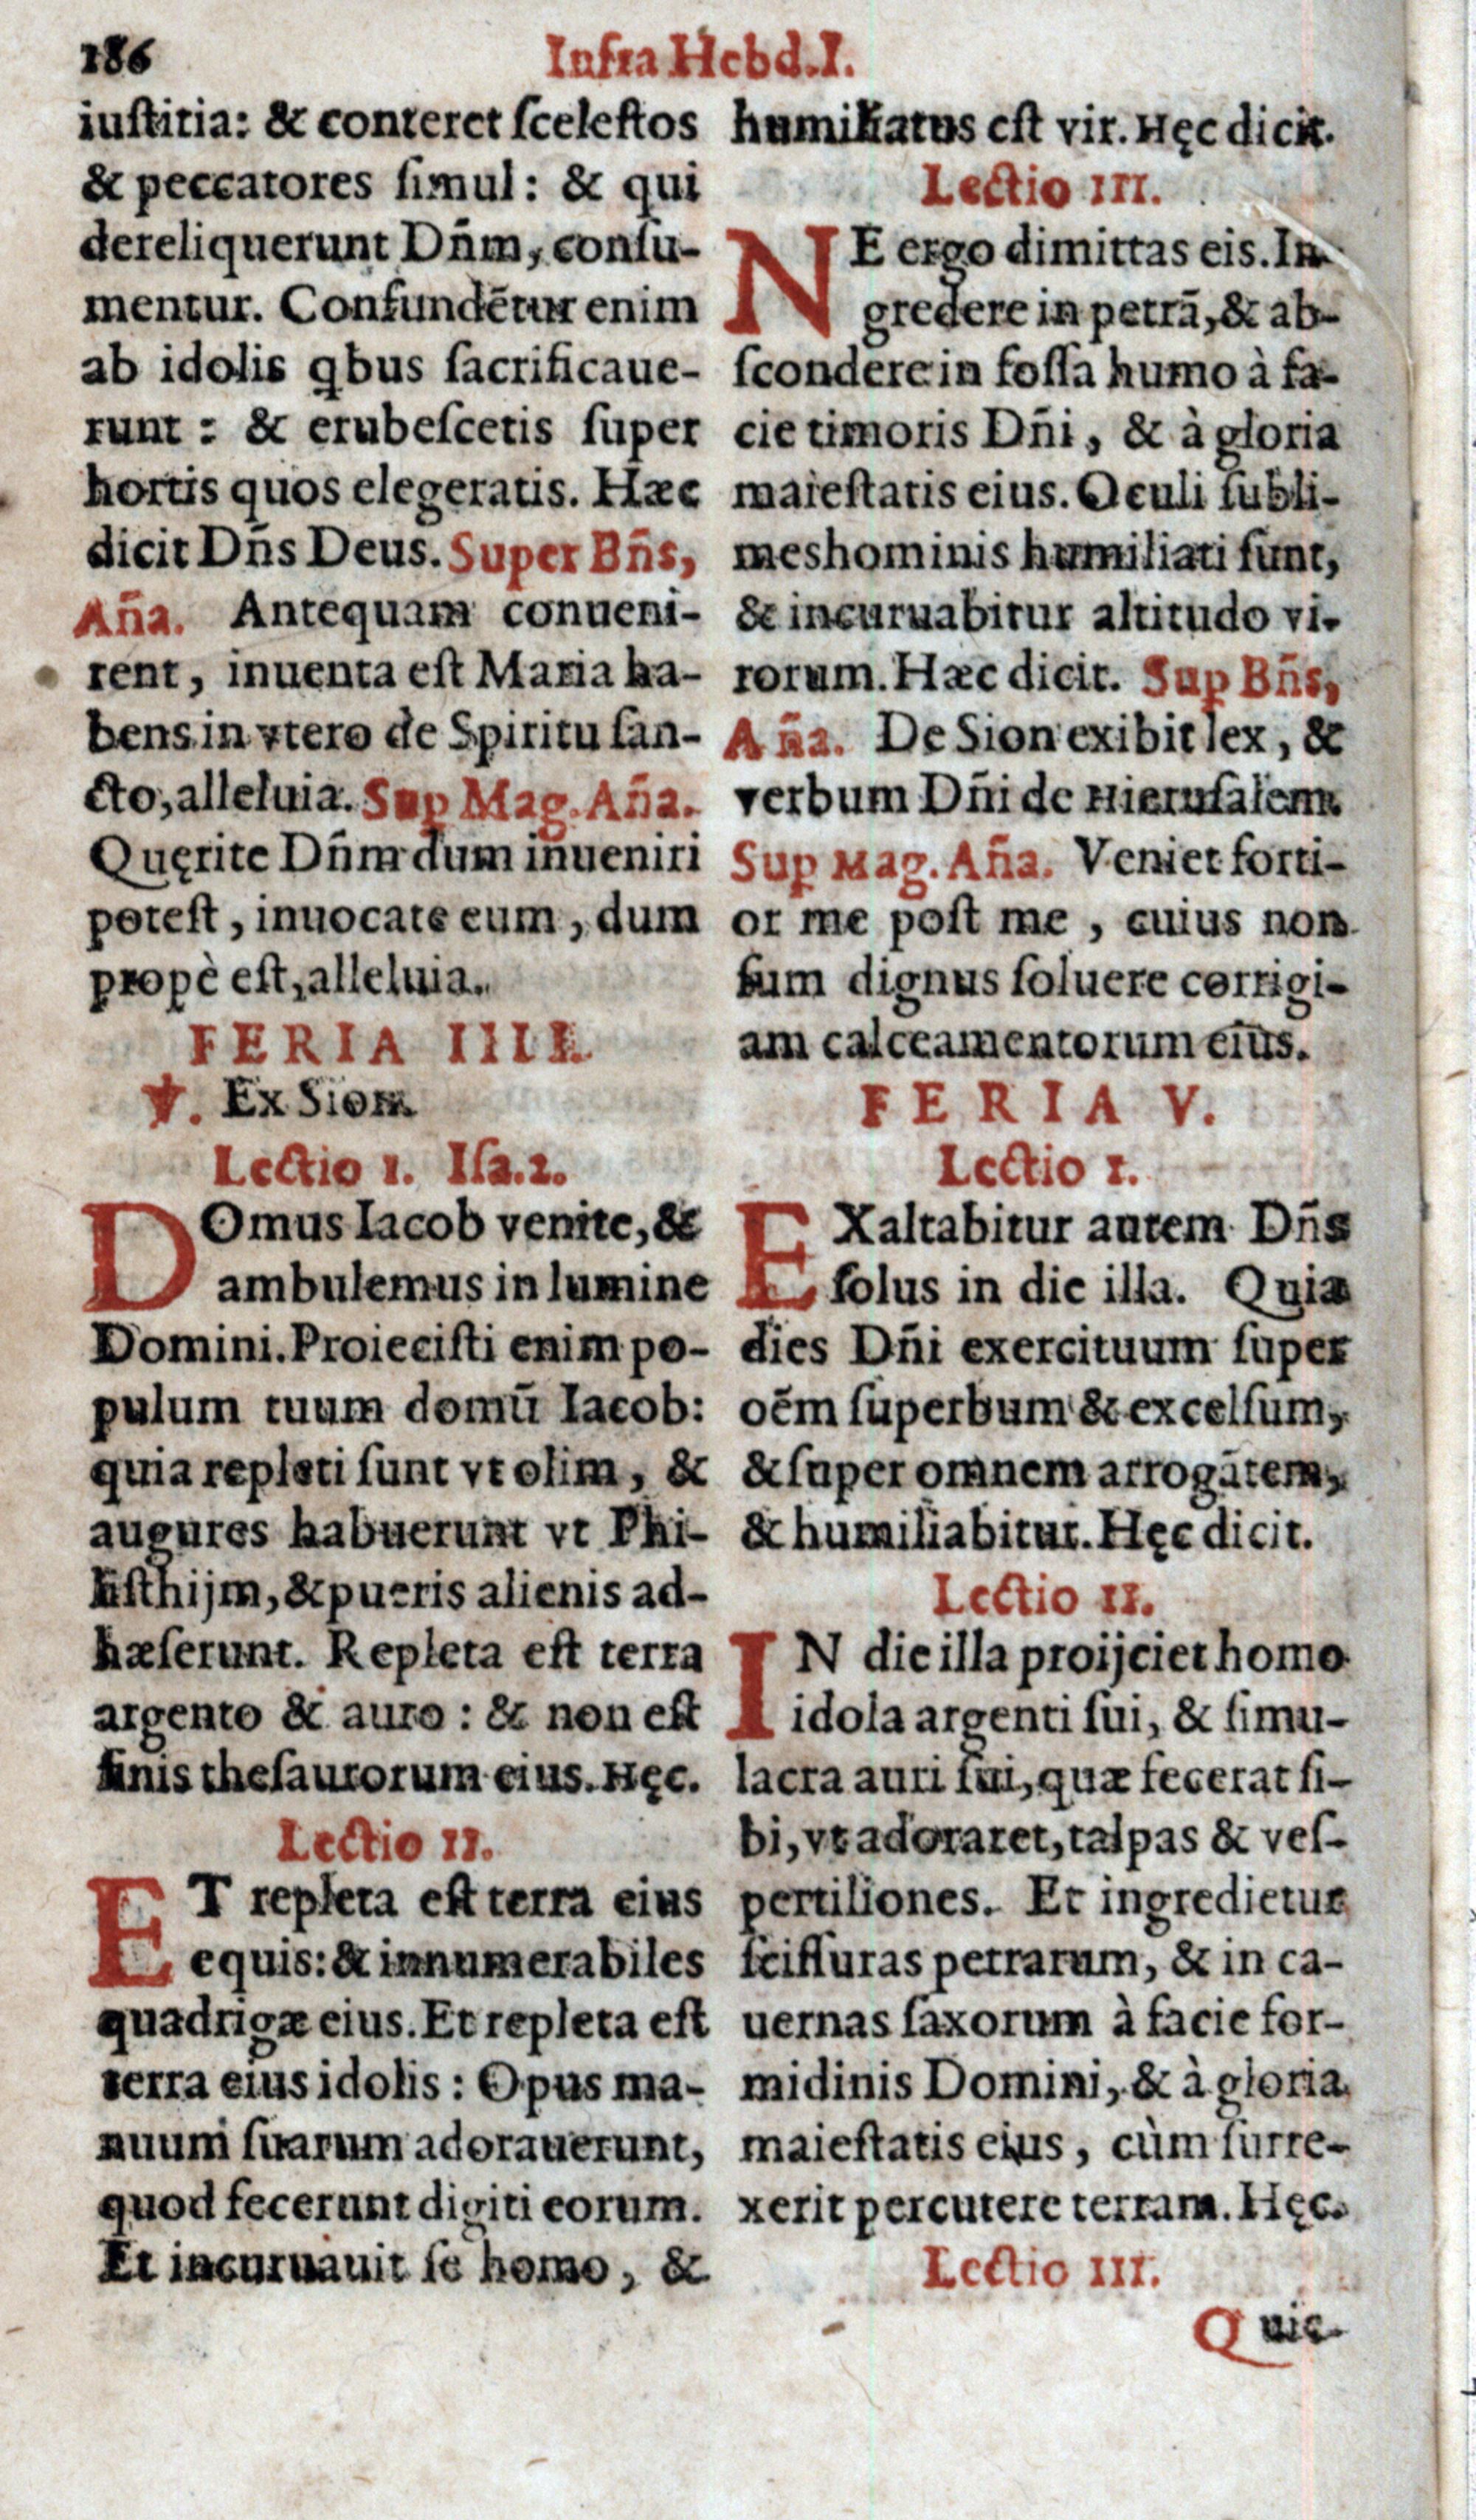 186
Infra Hebd.I.
iuſtitia: & conteret ſceleſtos
& peccatores ſimul: & qui
dereliquerunt Dñm, conſu-
mentur. Confundẽtur enim
ab idolis qbus ſacrificaue-
runt: & erubeſcetis ſuper
hortis quos elegeratis. Hæc
dicit Dñs Deus. Super Bñs,
Aña. Antequam conueni-
rent, inuenta eſt Maria ha-
bens in vtero de Spiritu ſan-
cto, alleluia. Sup Mag. Aña.
Quęrite Dñm dum inueniri
poteſt, inuocate eum, dum
propè eſt, alleluia.
FERIA IIII.
℣. Ex Sion
Lectio I. Iſa.2.
DOmus Iacob venite, &
ambulemus in lumine
Domini. Proieciſti enim po-
pulum tuum domũ Iacob:
quia repleti ſunt vt olim, &
augures habuerunt vt Phi-
liſthijm, & pueris alienis ad-
hæſerunt. Repleta eſt terra
argento & auro: & non eſt
finis theſaurorum eius. Hęc.
Lectio II.
ET repleta eſt terra eius
equis: & innumerabiles
quadrigæ eius. Et repleta eſt
terra eius idolis: Opus ma-
nuum ſuarum adorauerunt,
quod fecerunt digiti eorum.
Et incuruauit ſe homo, &
humiliatus eſt vir. Hęc dicit.
Lectio III.
NE ergo dimittas eis. In-
gredere in petrã, & ab-
ſcondere in foſſa humo à fa-
cie timoris Dñi, & à gloria
maieſtatis eius. Oculi ſubli-
meshominis humiliati ſunt,
& incuruabitur altitudo vi-
rorum. Hæc dicit. Sup Bñs,
Aña. De Sion exibit lex, &
verbum Dñi de Hieruſalem.
Sup Mag. Aña. Veniet forti-
or me poſt me, cuius non
ſum dignus ſoluere corrigi-
am calceamentorum eius.
FERIA V.
Lectio I.
EXaltabitur autem Dñs
ſolus in die illa. Quia
dies Dñi exercituum ſuper
oẽm ſuperbum & excelſum,
& ſuper omnem arrogãtem,
& humiliabitur. Hęc dicit.
Lectio II.
IN die illa proijciet homo
idola argenti ſui, & ſimu-
lacra auri ſui, quæ fecerat ſi-
bi, vt adoraret, talpas & veſ-
pertiliones. Et ingredietur
ſciſſuras petrarum, & in ca-
uernas ſaxorum à facie for-
midinis Domini, & à gloria
maieſtatis eius, cùm ſurre-
xerit percutere terram. Hęc.
Lectio III.
Quie-